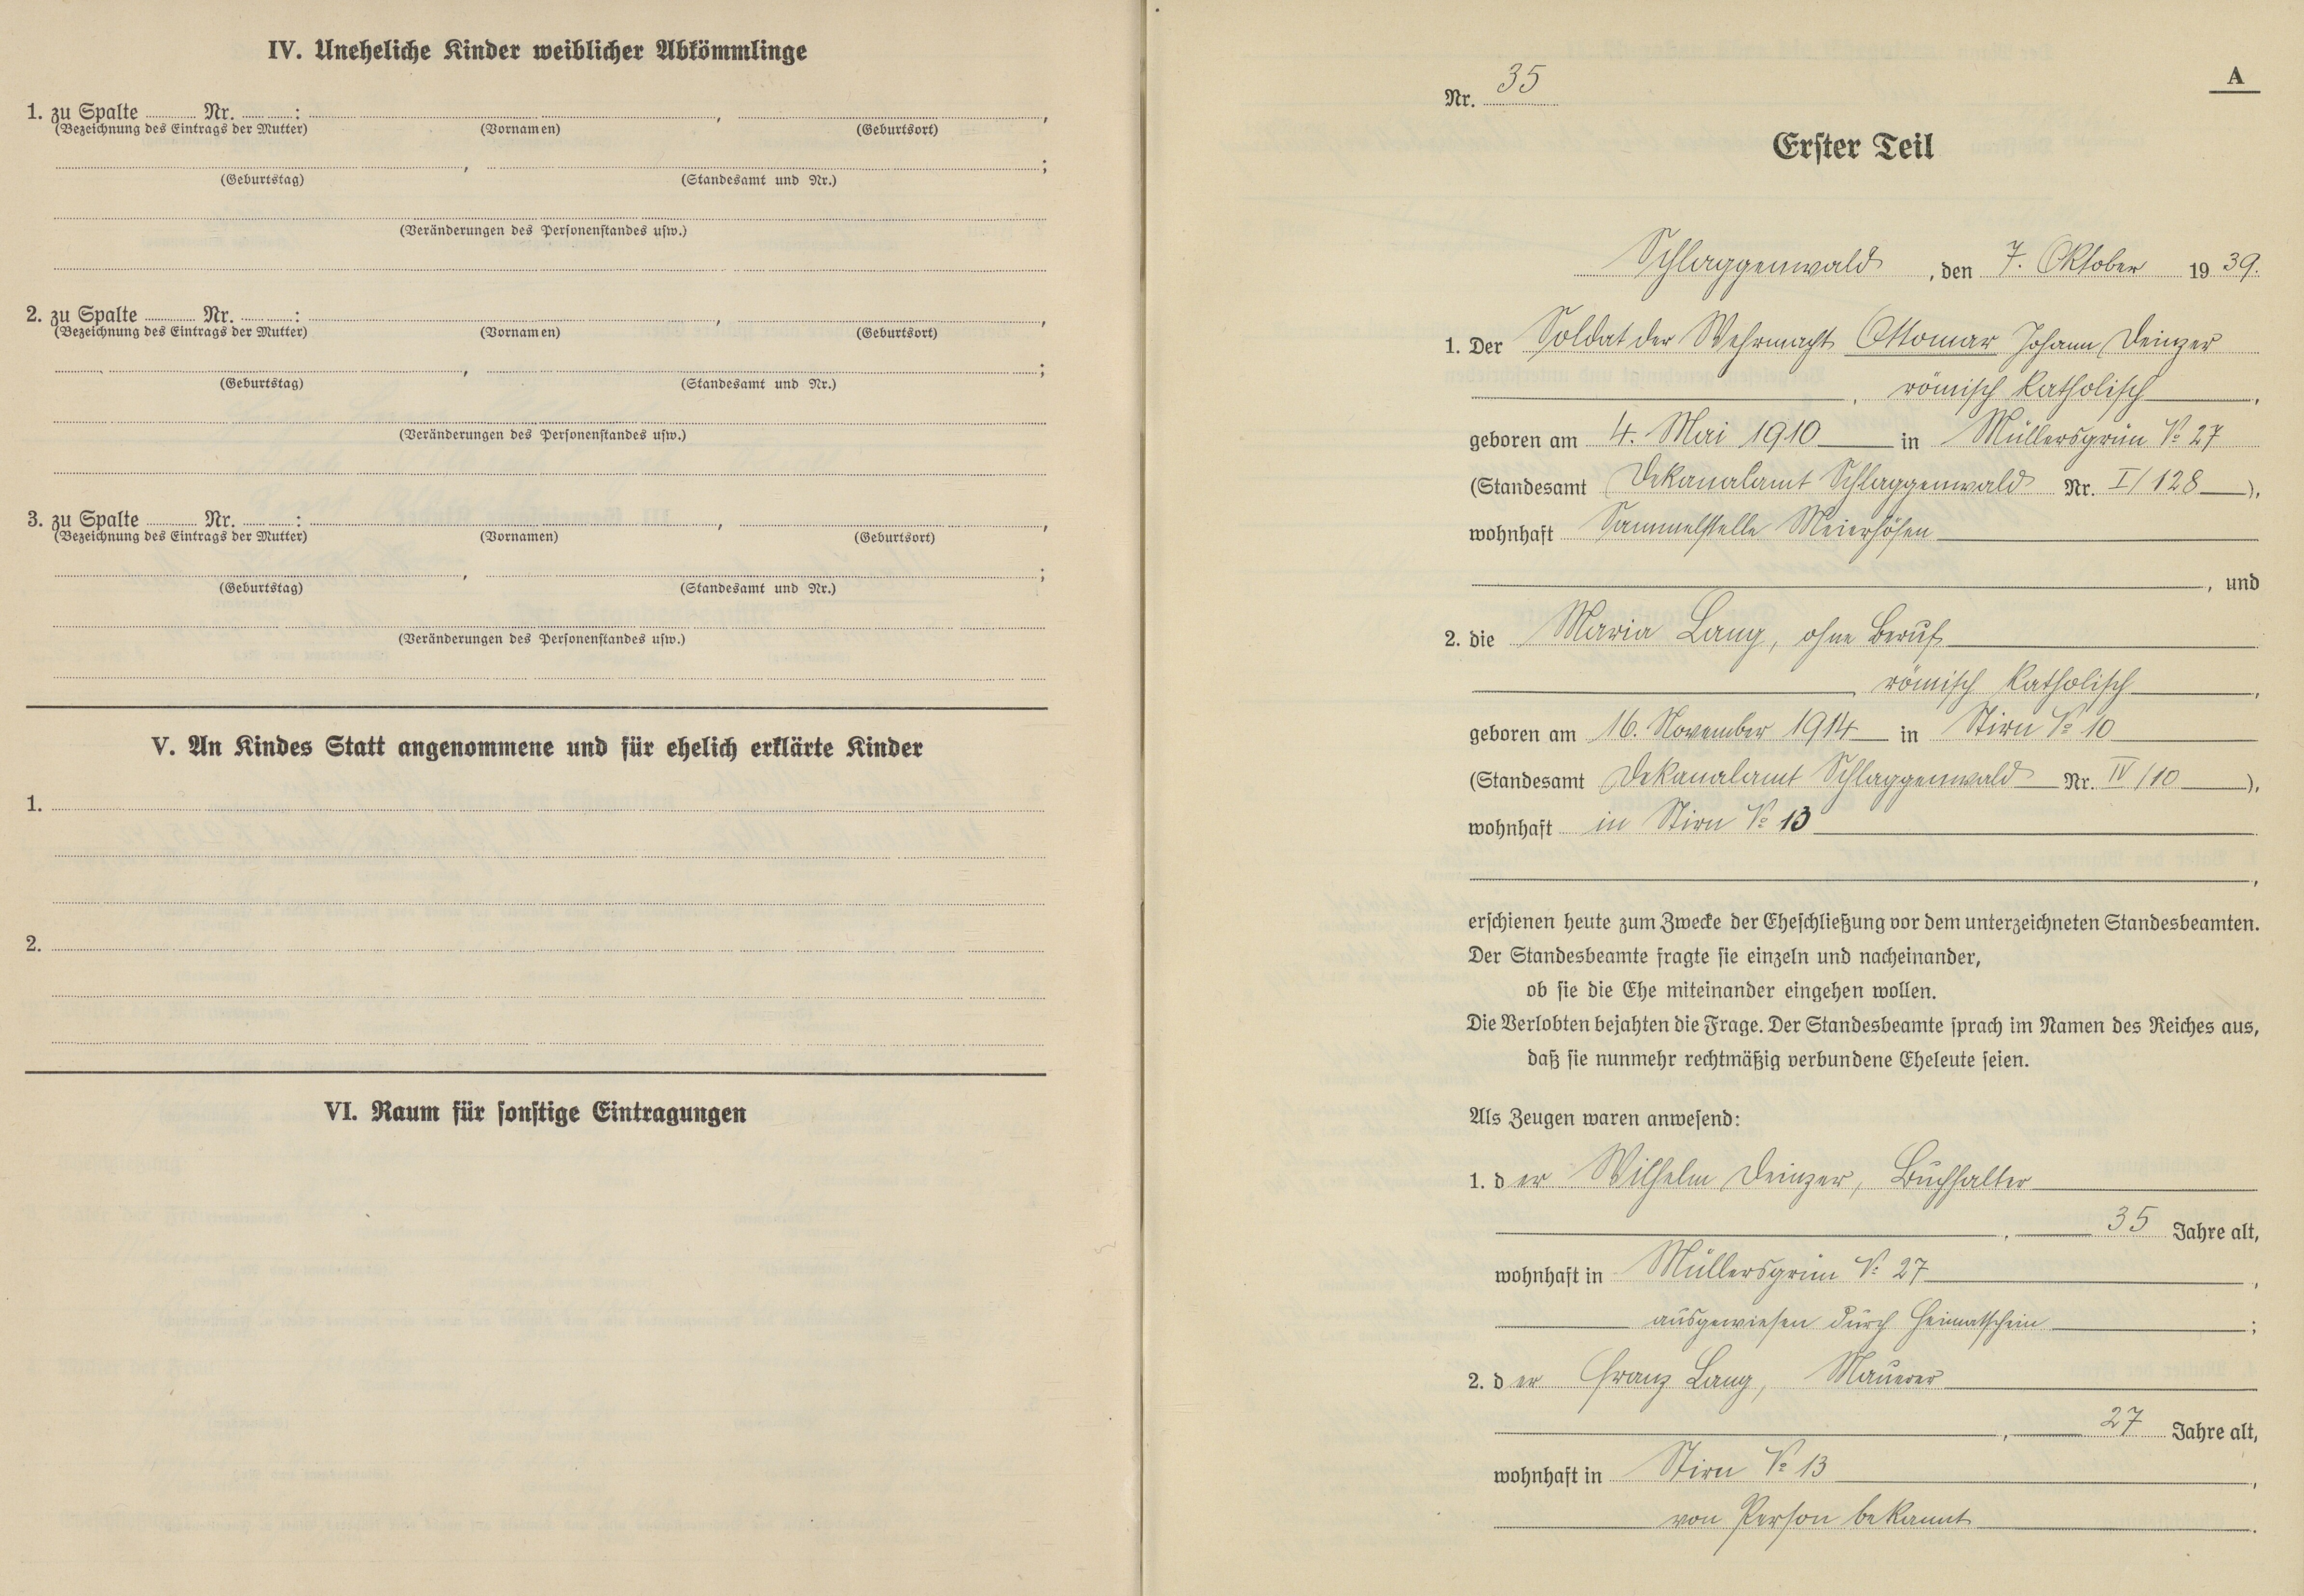 IV. Uneheliche Kinder weiblicher Abkömmlinge
1. zu Spalte ........ Nr. ........: ........, ........,
(Bezeichnung des Eintrags der Mutter) (Vornamen) (Geburtsort)
........, ........;
(Geburtstag) (Standesamt und Nr.)
(Veränderungen des Personenstandes usw.)
2. zu Spalte ........ Nr. ........: ........, ........,
(Bezeichnung des Eintrags der Mutter) (Vornamen) (Geburtsort)
........, ........;
(Geburtstag) (Standesamt und Nr.)
(Veränderungen des Personenstandes usw.)
3. zu Spalte ........ Nr. ........: ........, ........,
(Bezeichnung des Eintrags der Mutter) (Vornamen) (Geburtsort)
........, ........;
(Geburtstag) (Standesamt und Nr.)
(Veränderungen des Personenstandes usw.)
V. An Kindes Statt angenommene und für ehelich erklärte Kinder
1.
2.
VI. Raum für sonstige Eintragungen
A
Nr. 35
Erster Teil
Schlaggenwald, den 7. Oktober 1939.
1. Der Soldat der Wehrmacht Ottomar Johann Deinzer
, römisch katholisch,
geboren am 4. Mai 1910 in Müllersgrün № 27
(Standesamt Dekanalamt Schlaggenwald Nr. I/128),
wohnhaft Sammelstelle Meierhöfen
, und
2. die Maria Lang, ohne Beruf
, römisch katholisch,
geboren am 16. November 1914 in Stirn № 10
(Standesamt Dekanalamt Schlaggenwald Nr. IV/10),
wohnhaft in Stirn № 13
,
erschienen heute zum Zwecke der Eheschließung vor dem unterzeichneten Standesbeamten.
Der Standesbeamte fragte sie einzeln und nacheinander,
ob sie die Ehe miteinander eingehen wollen.
Die Verlobten bejahten die Frage. Der Standesbeamte sprach im Namen des Reiches aus,
daß sie nunmehr rechtmäßig verbundene Eheleute seien.
Als Zeugen waren anwesend:
1. der Wilhelm Deinzer, Buchhalter
, 35 Jahre alt,
wohnhaft in Müllersgrün № 27,
ausgewiesen durch Heimatschein;
2. der Franz Lang, Maurer
, 27 Jahre alt,
wohnhaft in Stirn № 13,
von Person bekannt.